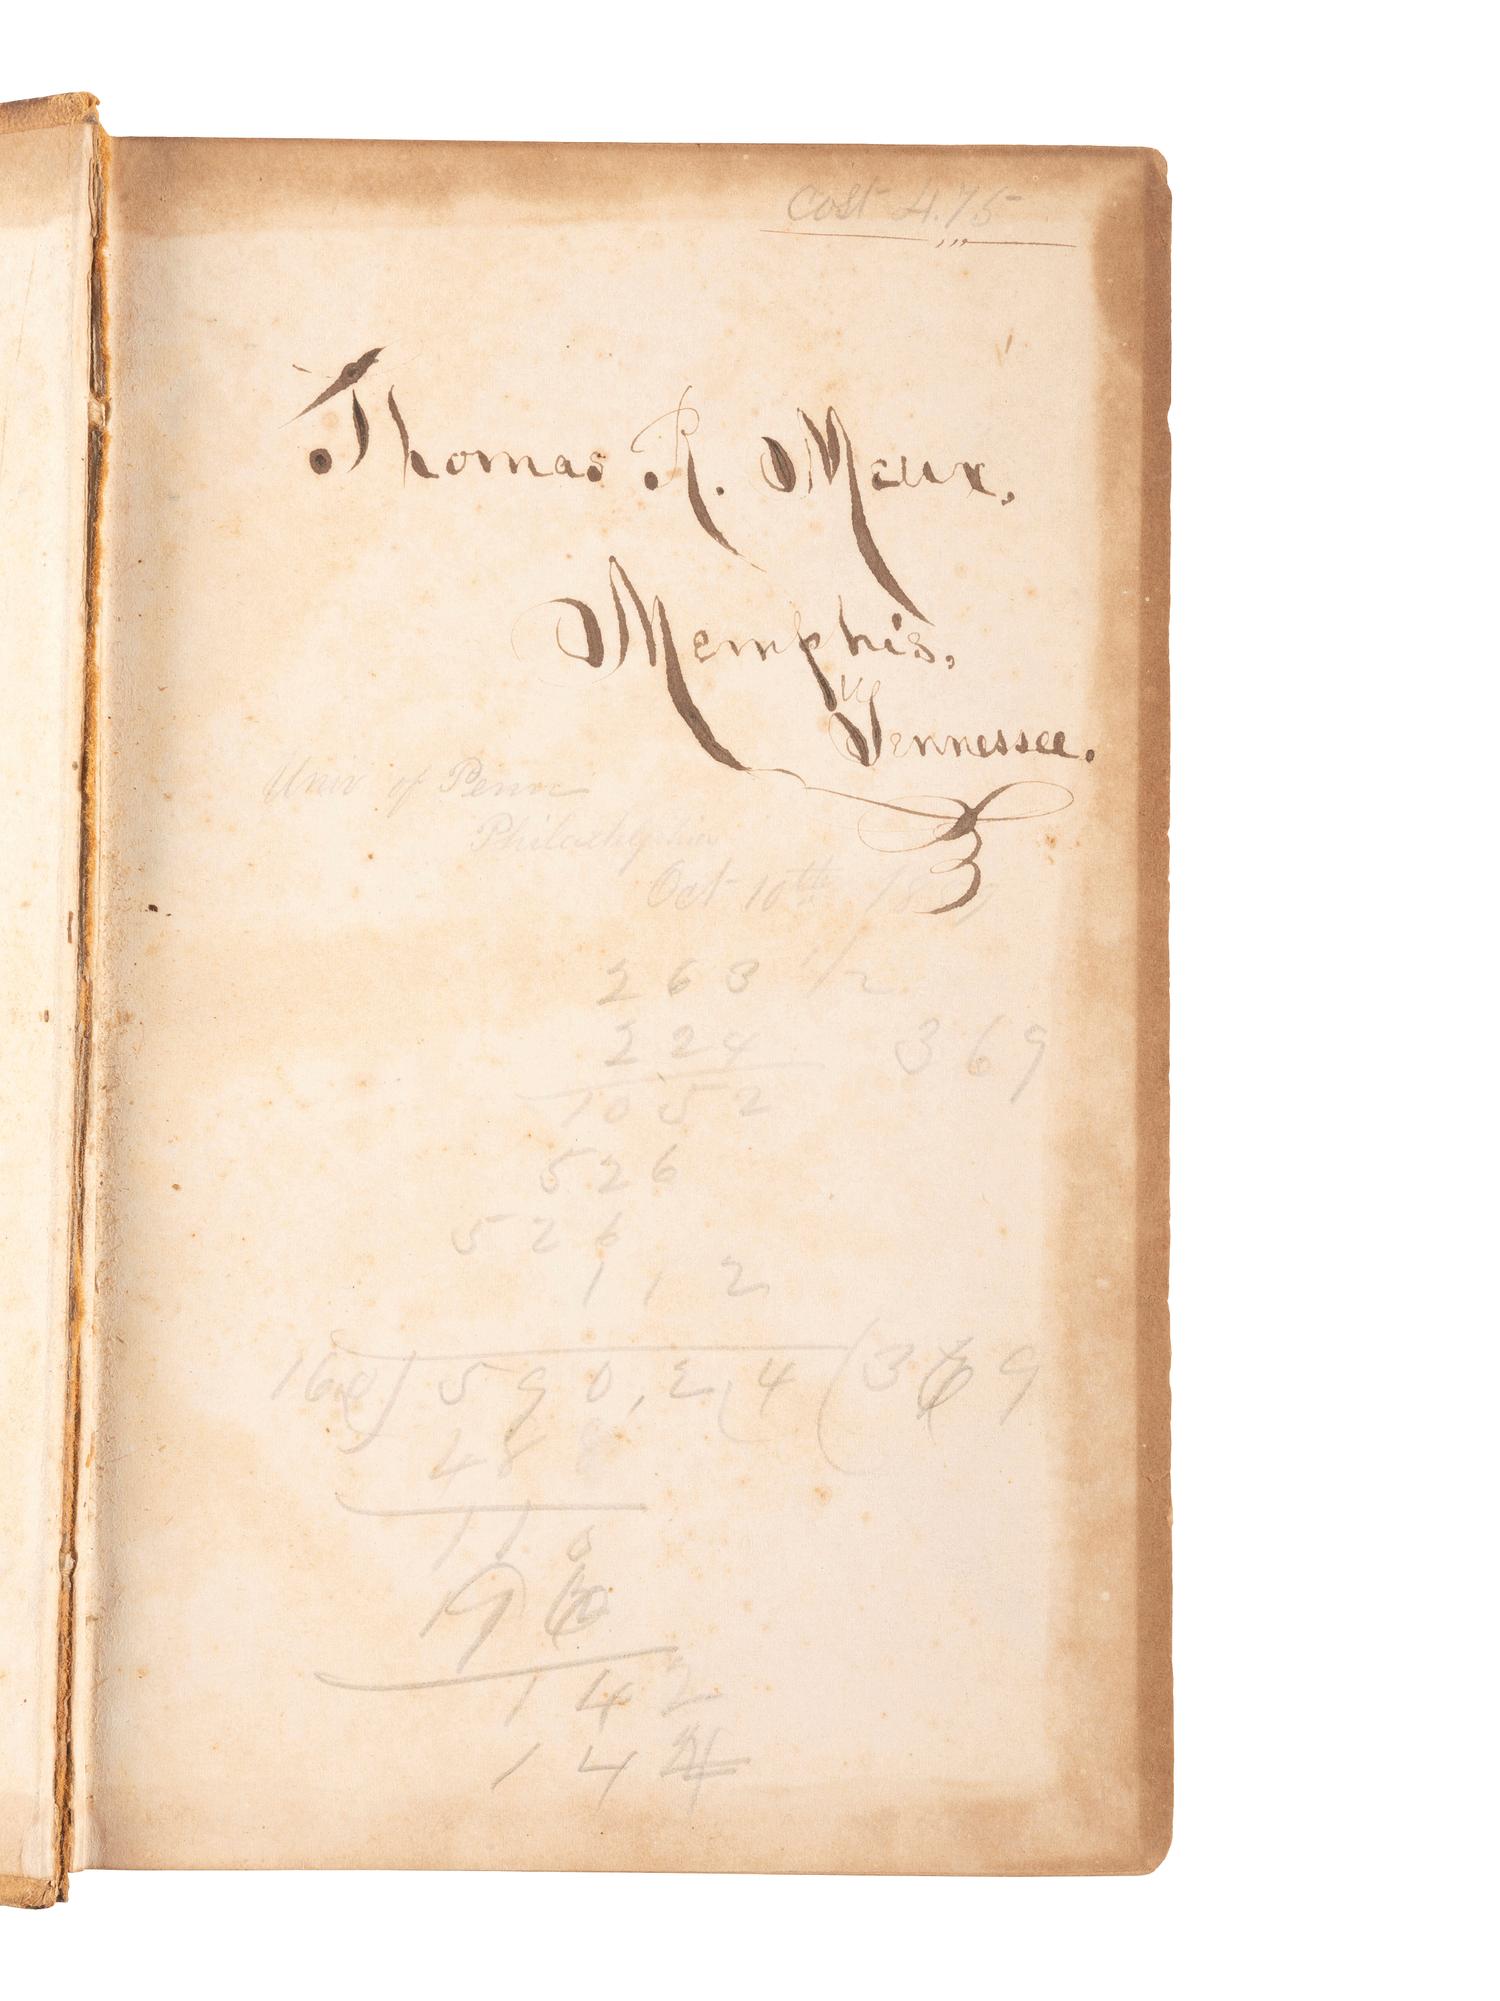 Cost 4.75
Thomas R. Meux,
Memphis,
Tennessee.
Univ of Penn
Philadelphia
Oct 10th
263 1/2
224 369
1052
526
526
1 1 2
160) 590,24 (369
48
11
142
144